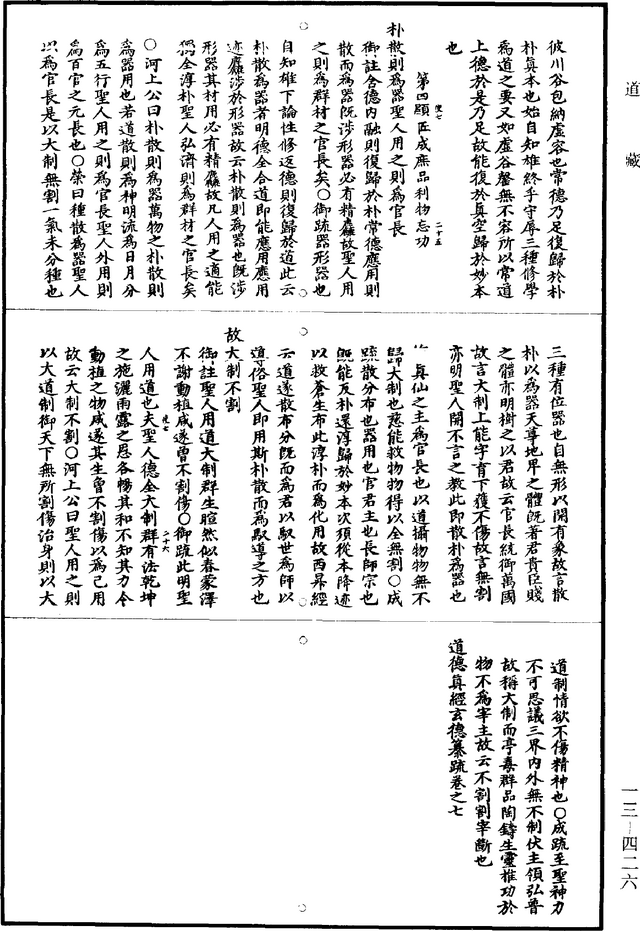 道藏
一三—四二六
彼川谷包納虛容也常德乃足復歸於朴
朴真本也始自知雄終乎守辱三種修學
為道之要又如虛谷罄無不容所以常道
上德於是乃足故能復於真空歸於妙本
也
第四顯匠成庶品利物忘功
二十五
朴散則為器聖人用之則為官長
御註含德內融則復歸於朴常德應用則
散而為器既涉形器必有精麤故聖人用
之則為群材之官長矣○御疏器形器也
自知雄下論性修返德則復歸於道此云
朴散為器者明德全合道即能應用應用
迹麤涉於形器故云朴散則為器也既涉
形器其材用必有精麤故凡人用之適能
獨全淳朴聖人弘濟則為群材之官長矣
○河上公曰朴散則為器萬物之朴散則
為器用也若道散則為神明流為日月分
為五行聖人用之則為官長聖人外用則
為百官之元長也○榮曰種散為器聖人
以為官長是以大制無割一氣未分種也
三種有位器也自無形以開有象故言散
朴以為器天尊地卑之體既著君貴臣賤
之體亦明樹之以君故云官長統御萬國
故言大制上能字育下獲不傷故言無割
亦明聖人開不言之教此即散朴為器也
真仙之主為官長也以道攝物物無不
歸大制也慈能救物物得以全無割○成
疏散分布也器用也官君主也長師宗也
既能反朴還淳歸於妙本次須從本降迹
以救蒼生布此淳朴而為化用故西昇經
云道遂散布分既而為君以馭世為師以
導俗聖人即用斯朴散而為馭導之方也
故大制不割
御註聖人用道大制群生暄然似春蒙澤
不謝動植咸遂曾不割傷○御疏此明聖
人用道也夫聖人德全大制群有法乾坤
二十六
之施灑雨露之恩各暢其和不知其力令
動植之物咸遂其生曾不割傷以為己用
故云大制不割○河上公曰聖人用之則
以大道制御天下無所割傷治身則以大
道制情欲不傷精神也○成疏至聖神力
不可思議三界內外無不制伏主領弘普
故稱大制而亭毒群品陶鑄生靈推功於
物不為宰主故云不割割宰斷也
道德真經玄德纂疏卷之七